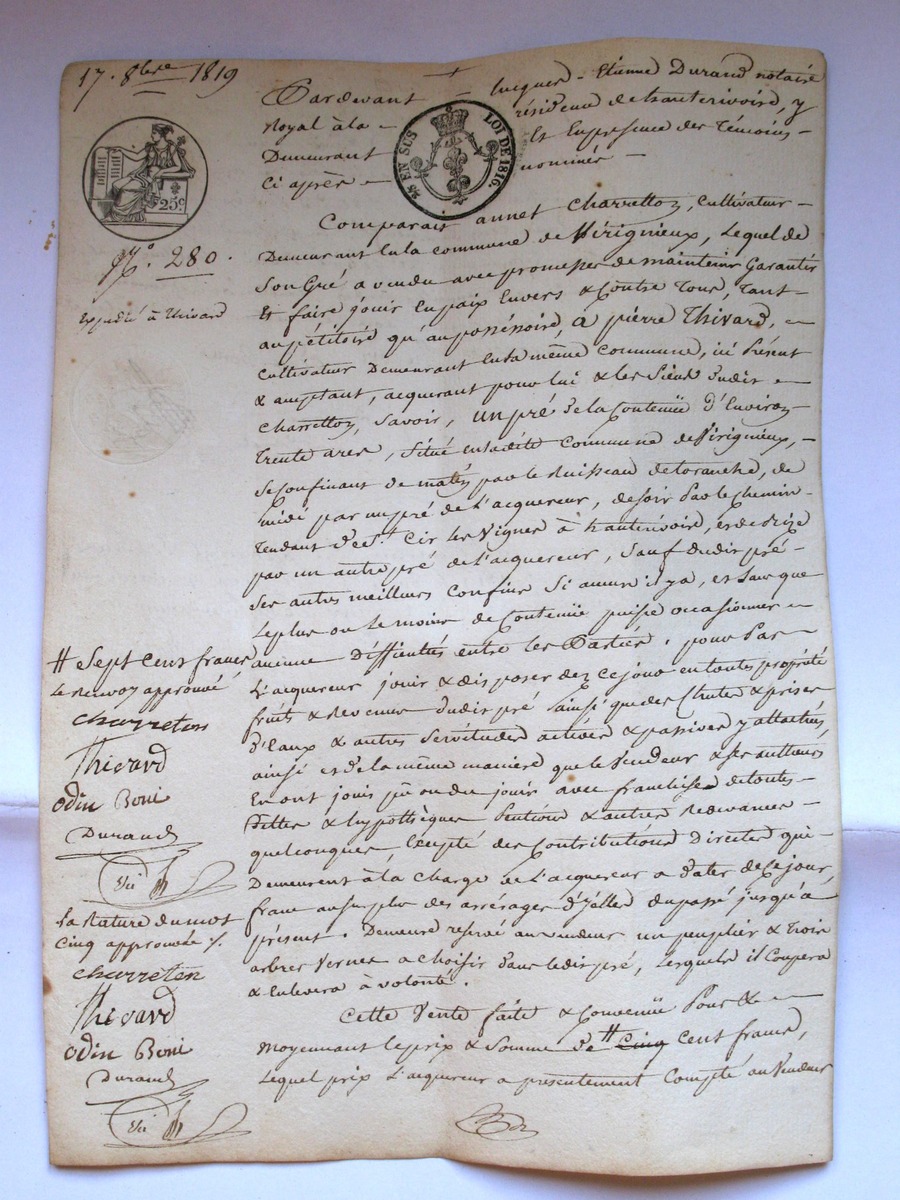 17. 8bre 1819
Pardevant Jacques - Etienne Durand notaire
royal à la résidence de hauterivoire, y
Demeurant Et En présence des Témoins
Ci après nommés
25c
EN SUS LOI DE 1816.
No. 280.
Expédié à Thivard
Comparait annet Charretton, Cultivateur
Demeurant En la commune de Virigneux, Lequel de
Son Gré a vendu avec promesse de maintenir Garantir
Et faire jouir En paix Envers & Contre Tous, Tant
au pétitoire qu'au possessoire, à pierre Thivard,
Cultivateur Demeurant En la même Commune, ici Présent
& acceptant, acquerant pour lui & les Siens dudit
Charretton, Savoir, un pré de la Contenüe d'Environ
Trente ares, Situé en ladite Commune de Virigneux,
Se Confinant de matin par le Ruisseau de toranche, de
midi par un pré de l'acquereur, de soir Par le Chemin
Tendant de St. Cir les Vignes à hauterivoire, et de bize
par un autre pré de l'acquereur, Sauf dudit pré
Ses autres meilleurs Confins Si aucuns il y a, et Sans que
Le plus ou le moins de Contenüe puisse occasionner
aucune Difficultés entre les Parties. pour Par
L'acquereur jouir & disposer dez ce jour en toutes propriété
fruits & Revenus dudit pré Sainsi que des Chutes & prises
d'Eaux & autres Servitudes actives & passives y attachées,
ainsi et de la même manière que le Vendeur & Ses autheurs
En ont jouis pû ou du jouir avec franchise de toutes
Dettes & hypothèques Pentions & autres Redevances
quelconques, Excepté des Contributions Directes qui
Demeurent à la Charge de L'acquereur a Dater de Ce jour,
franc au Surplus des arrérages d'Jcelles du passé jusqu'à
présent. Demeure reservé au vendeur un peuplier & Trois
arbres Vernes a choisir dans ledit pré, Lesquels il Coupera
& Enlevera à volonté.
Cette Vente faite & Convenüe Pour &
moyennant le prix & Somme de # Cinq Cent francs,
Lequel prix L'acquereur a présentement Compté au Vendeur
# Sept cent francs
Le Renvoy approuvé
Charreton
Thivard
Odin Boni
Durand
La Rature du mot
Cinq approuvée
Charreton
Thivard
Odin Boni
Durand